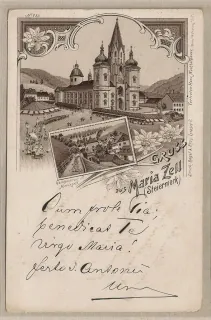 Gruss
aus Maria Zell
(Steiermark)
Cum prole pia,
benedicat Te
Virgo Maria!
festo S. Antonii